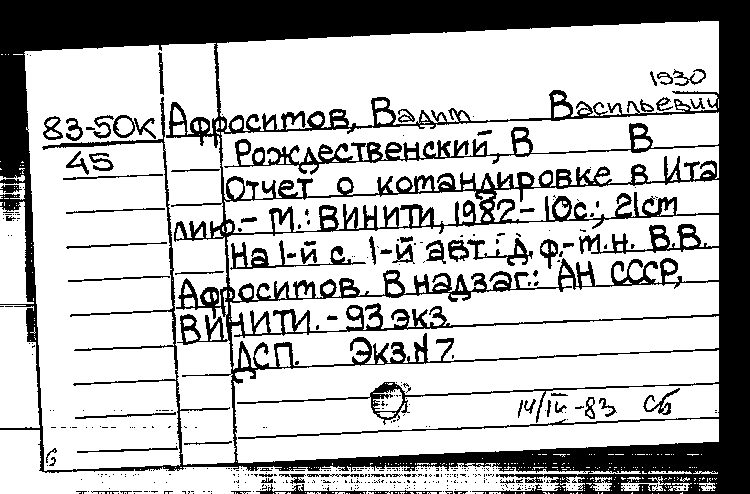 1930
83-50К Афроситов, Вадим Васильевич
45 Рождественский, В В
Отчет о командировке в Ита
лию.- М.: ВИНИТИ, 1982.- 10с.; 21см
На 1-й с. 1-й авт.: д.ф.-м.н. В.В.
Афроситов. В надзаг.: АН СССР,
ВИНИТИ. - 93 экз.
ДСП. Экз.N 7.
14/IV-83 Сб
6